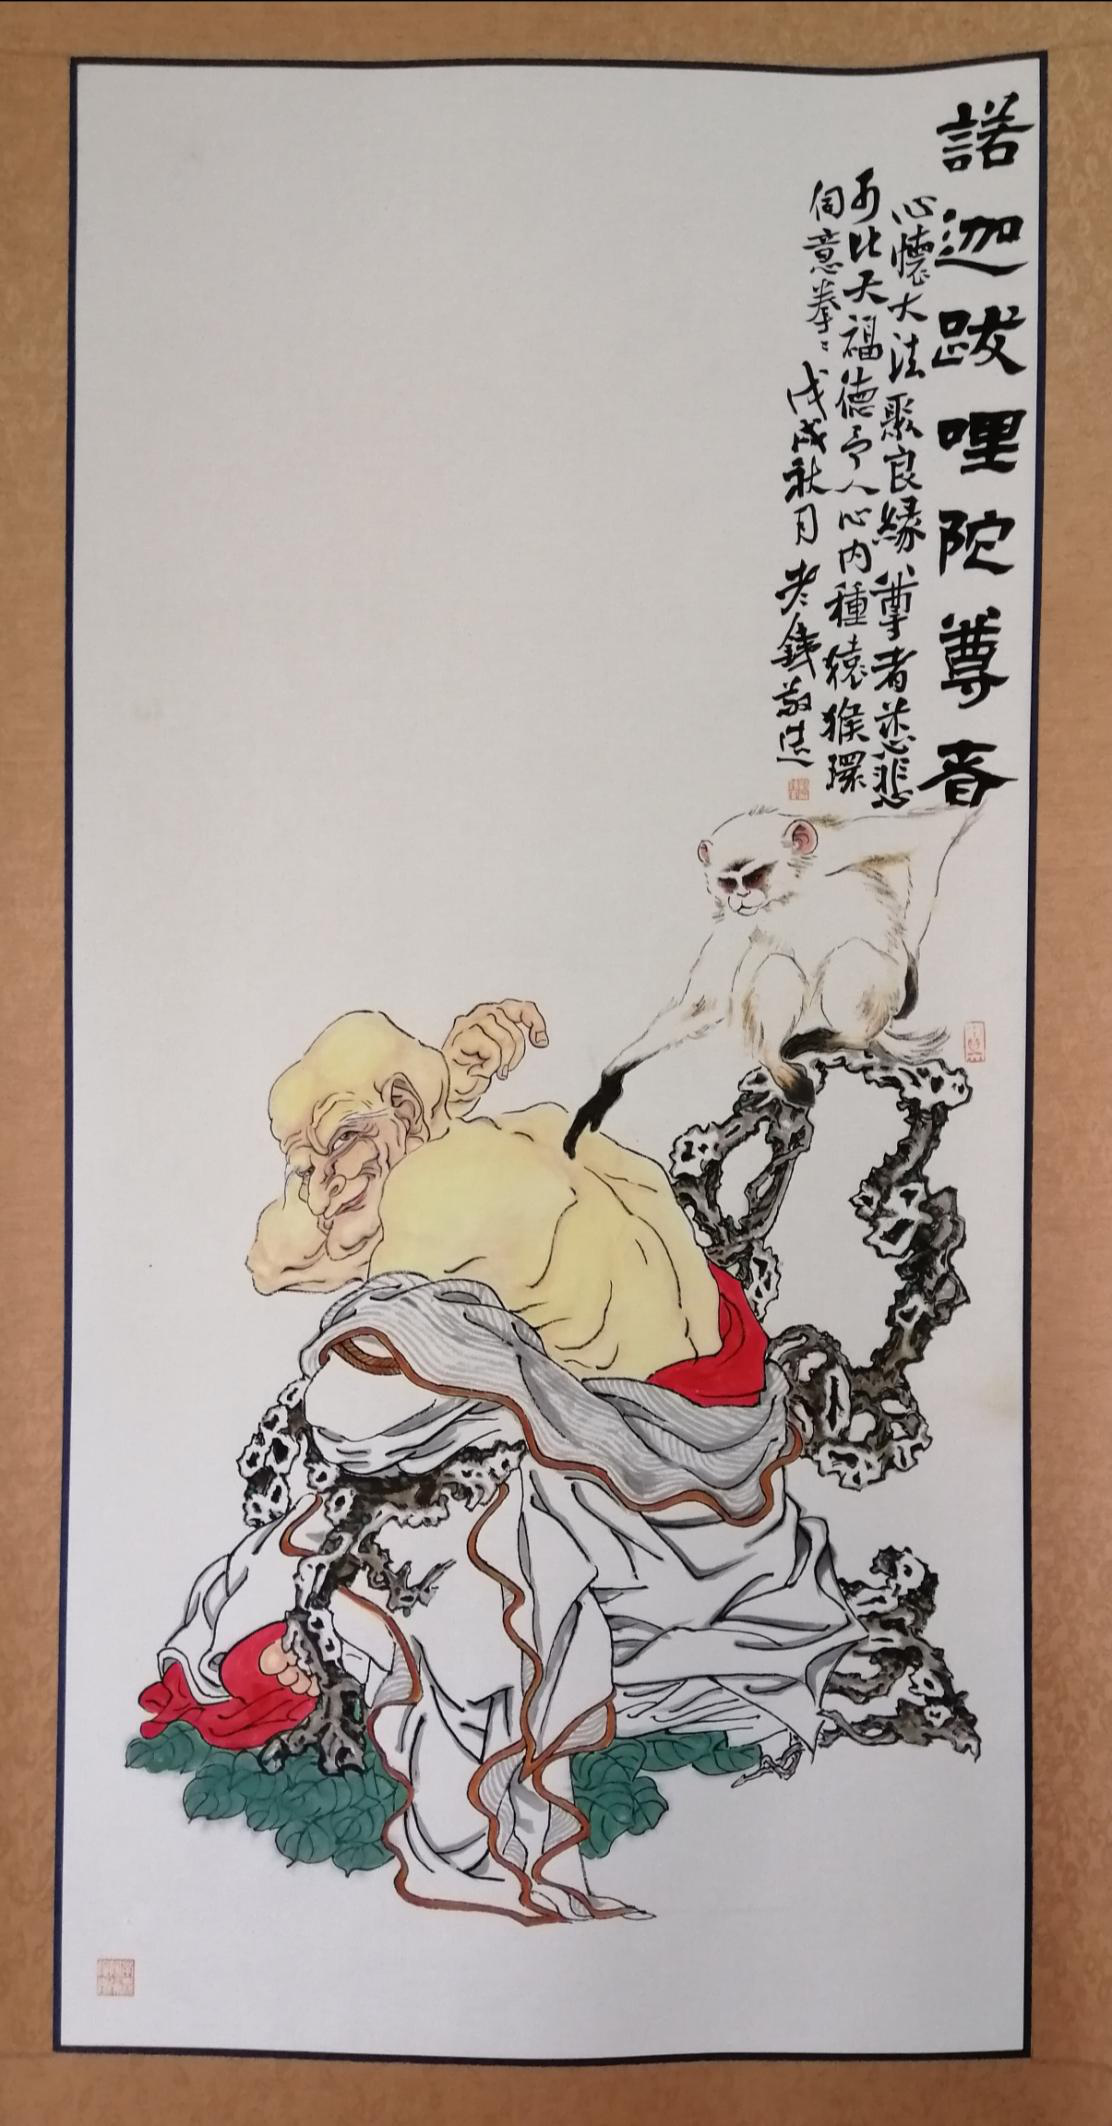 諾迦跋哩陀尊者
心懷大法聚良緣尊者慈悲
可比天福德予人心内種猿猴環
伺意拳〻戊戌秋月老鐵敬造